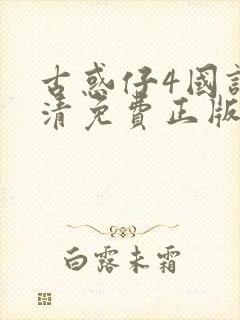 古惑仔4國語
清免費正版
白露未霜